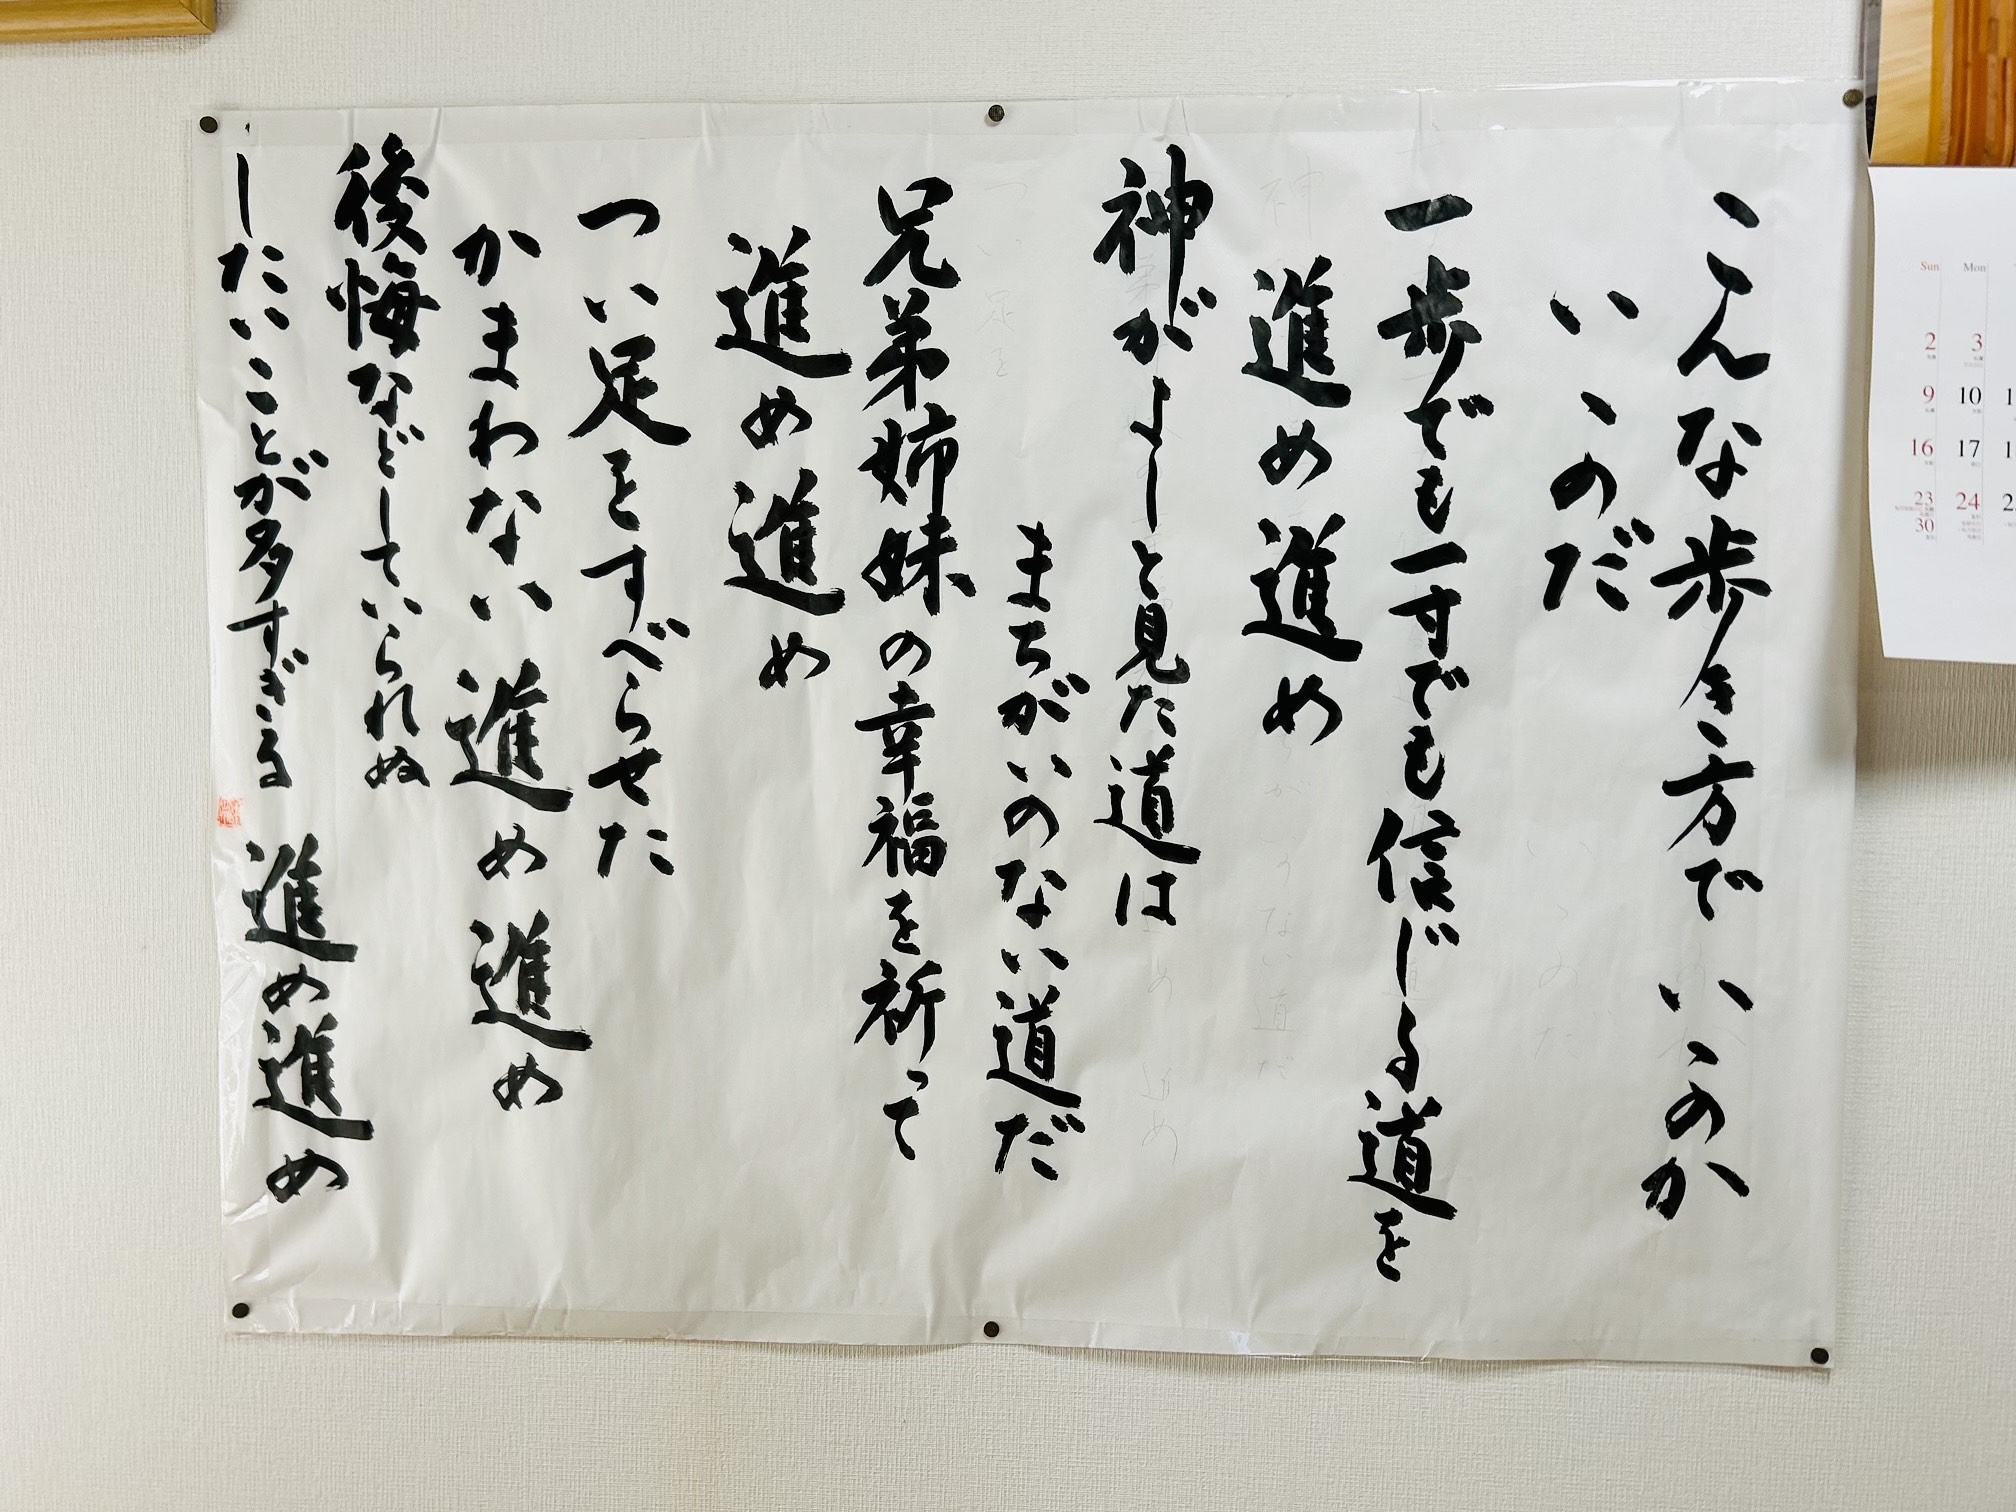 こんな歩き方でいゝのか
いゝのだ
一歩でも一寸でも信じる道を
進め進め
神がよしと見た道は
まちがいのない道だ
兄弟姉妹の幸福を祈って
進め進め
つい足をすべらせた
かまわない進め進め
後悔などしていられぬ
したいことが多すぎる
進め進め
Sun Mon
2 3
9 10
16 17
23 24
30